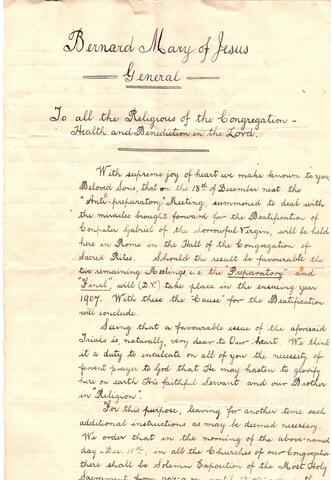 Bernard Mary of Jesus
General
To all the Religious of the Congregation -
Health and Benediction in the Lord.
With supreme joy of heart we make known to you,
Beloved Sons, that on the 18th of December next the
"Anti-preparatory" Meeting, summoned to deal with
the miracles brought forward for the Beatification of
Confrater Gabriel of the Sorrowful Virgin, will be held
here in Rome in the Hall of the Congregation of
Sacred Rites. Should the result be favourable the
two remaining Meetings, i.e. the "Preparatory" and
"Final", will (D.V.) take place in the ensuing year
1907. With these the "Cause" for the Beatification
will conclude.
Seeing that a favourable issue of the aforesaid
Triads is, naturally, very dear to Our heart, We think
it a duty to inculcate on all of you the necessity of
fervent prayer to God that He may hasten to glorify
here on earth His faithful Servant and our Brother
in "Religion".
For this purpose, leaving for another time such
additional instructions as may be deemed necessary,
We order that in the morning of the above-named
day - Dec. 18th, in all the Churches of our Congregation
there shall be Solemn Exposition of the Most Holy
Sacrament from